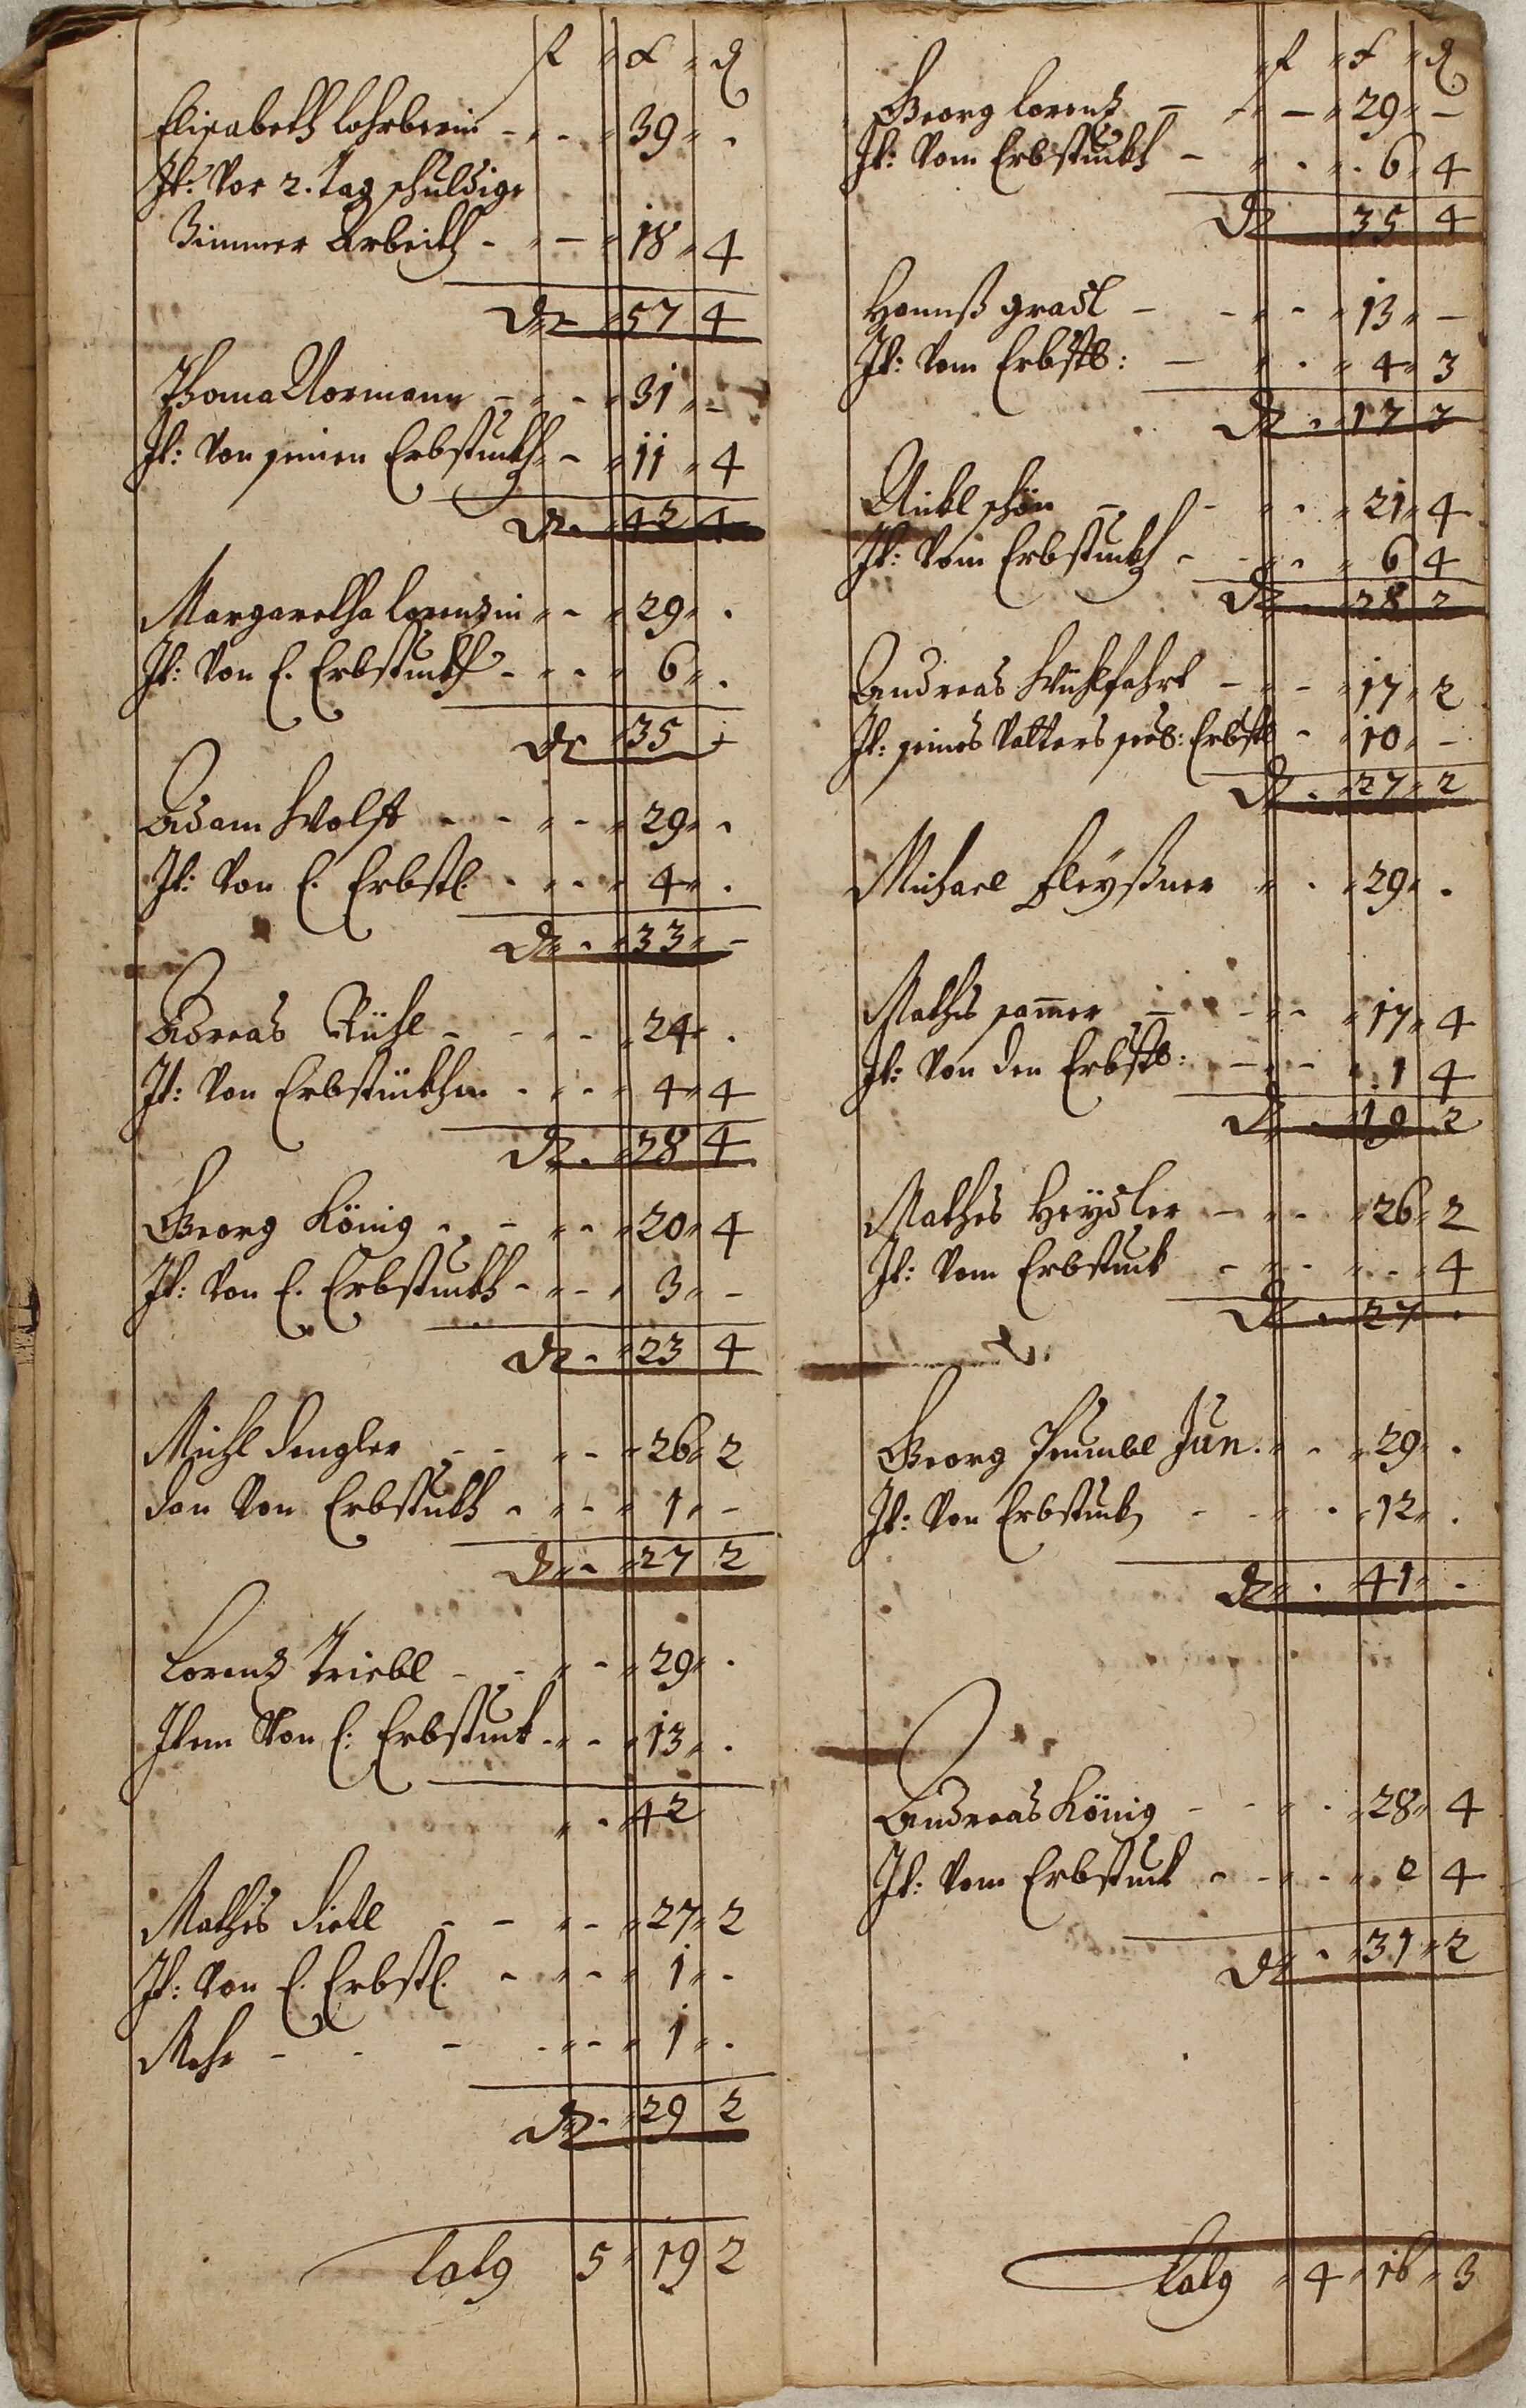 f x d
Elisabeth Lohrberin - - - 39 .
It: Vor 2. Tag schuldige
Zimmer Arbeith - - 18 4
57 4
Thoma Vormann - - 31 -
It: Von seinen Erbstuckh - 11 4
42 4
Margaretha Lorenzin - 29 .
It: Von E. Erbstuckh - - 6 .
35 -
Adam Wolff - - - 29 .
It: Von E. Erbstl. - - 4 .
33 -
Andreas - - - 24 .
It: Von Erbstückhen - - 4 4
28 4
Georg König - - - 20 4
It: Von E. Erbstuckh - - 3 -
23 4
Michl Dengler - - - 26 2
Von Erbstuckh - - 1 -
27 2
Lorenz Triebl - - - 29 .
Item Von E: Erbstuck - - 13 .
42
Mathis Dietl - - - 27 2
It: Von E. Erbstl. - - 1 -
Mehr - - - 1 .
29 2
Latg 5 19 2
f x d
Georg Lorenz - - 29 -
It: Vom Erbstuckh - . 6 4
35 4
Hannß Gradl - - 13 -
It: Vom Erbstk: - . 4 3
17 3
Nickl Schön - - . 21 4
It: Vom Erbstuckh - - 6 4
28 2
Andreas Wuhlfahrt - - 17 2
It: seines Vatters Erbstk - 10 -
27 2
Michael Fleyßner . 29 .
Mathes - - 17 4
It: Von den Erbstk: - - 1 4
19 2
Mathes Heydler - - 26 2
It: Vom Erbstuck - - . 4
27 .
Georg Jun. - 29 .
It: Von Erbstuck - - . 12 .
41 .
Andreas König - - . 28 4
It: Vom Erbstuck - - 2 4
31 2
Latg 4 16 3